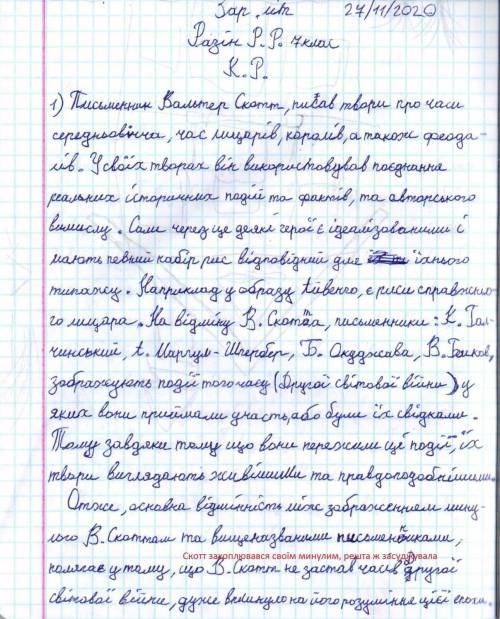 Зар. літ 27/11/2020
Разін Р.Р. 7 клас
К.Р.
1) Письменник Вальтер Скотт, писав твори про часи
середньовіччя, час лицарів, королів, а також феода-
лів. У своїх творах він використовував поєднання
реальних історичних подій та фактів, та авторського
вимислу. Саме через це деякі герої є ідеалізованими і
мають певний набір рис відповідний для їхнього
типажу. Наприклад у образу Айвенго, є риси справжньо-
го лицара. На відміну В. Скотта, письменники: К. Гал-
чинський, А. Маргул-Шпербер, Б. Окуджава, В. Биков,
зображують події того часу (Другої світової війни) у
яких вони приймали участь, або були їх свідками.
Тому завдяки тому що вони пережили ці події, їх
твори виглядають живішими та правдоподобнішими.
Отже, основна відмінність між зображенням мину-
лого В. Скоттом та вищеназваними письменниками,
Скотт захоплювався своїм минулим, решта ж засуджувала
полягає у тому, що В. Скотт не застав часів Другої
світової війни, дуже вплинуло на його розуміння цієї епохи.